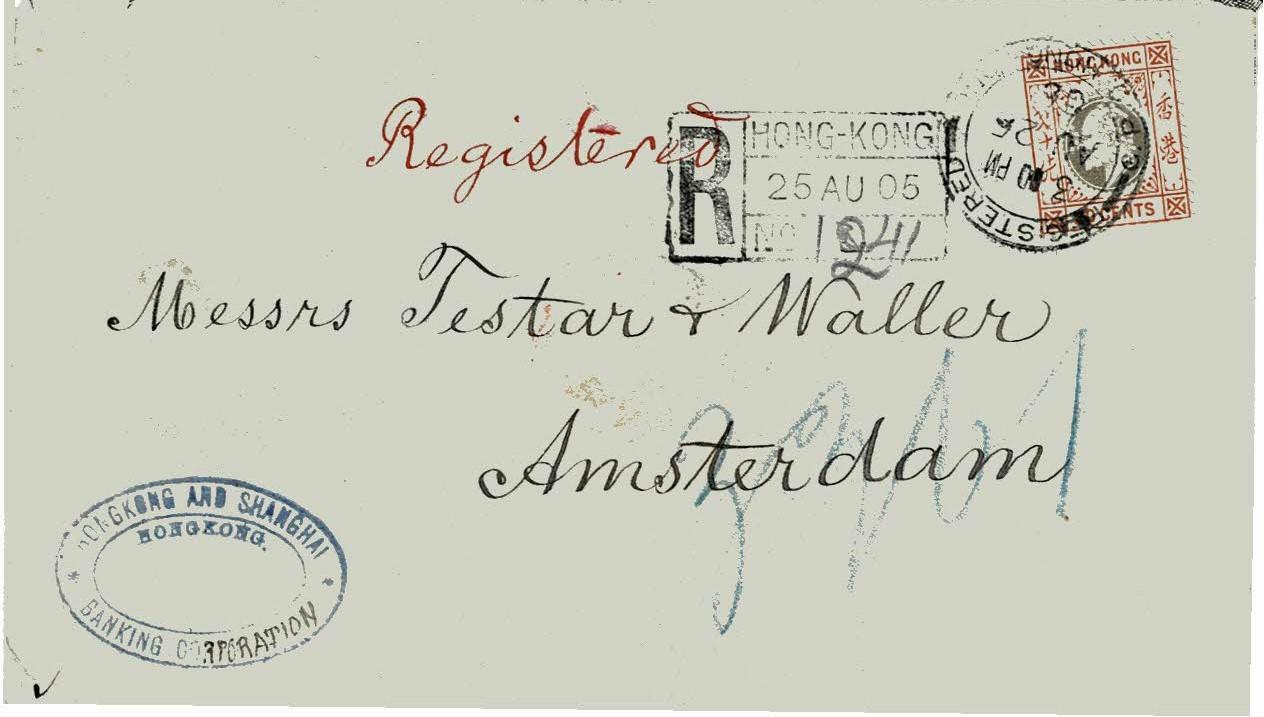 Registered
R
HONG-KONG
25 AU 05
No 1241
HONG KONG
香港
CENTS
REGISTERED
3 00 PM
AU 25
05
Messrs Testar & Waller
Amsterdam
HONGKONG AND SHANGHAI
HONGKONG.
BANKING CORPORATION